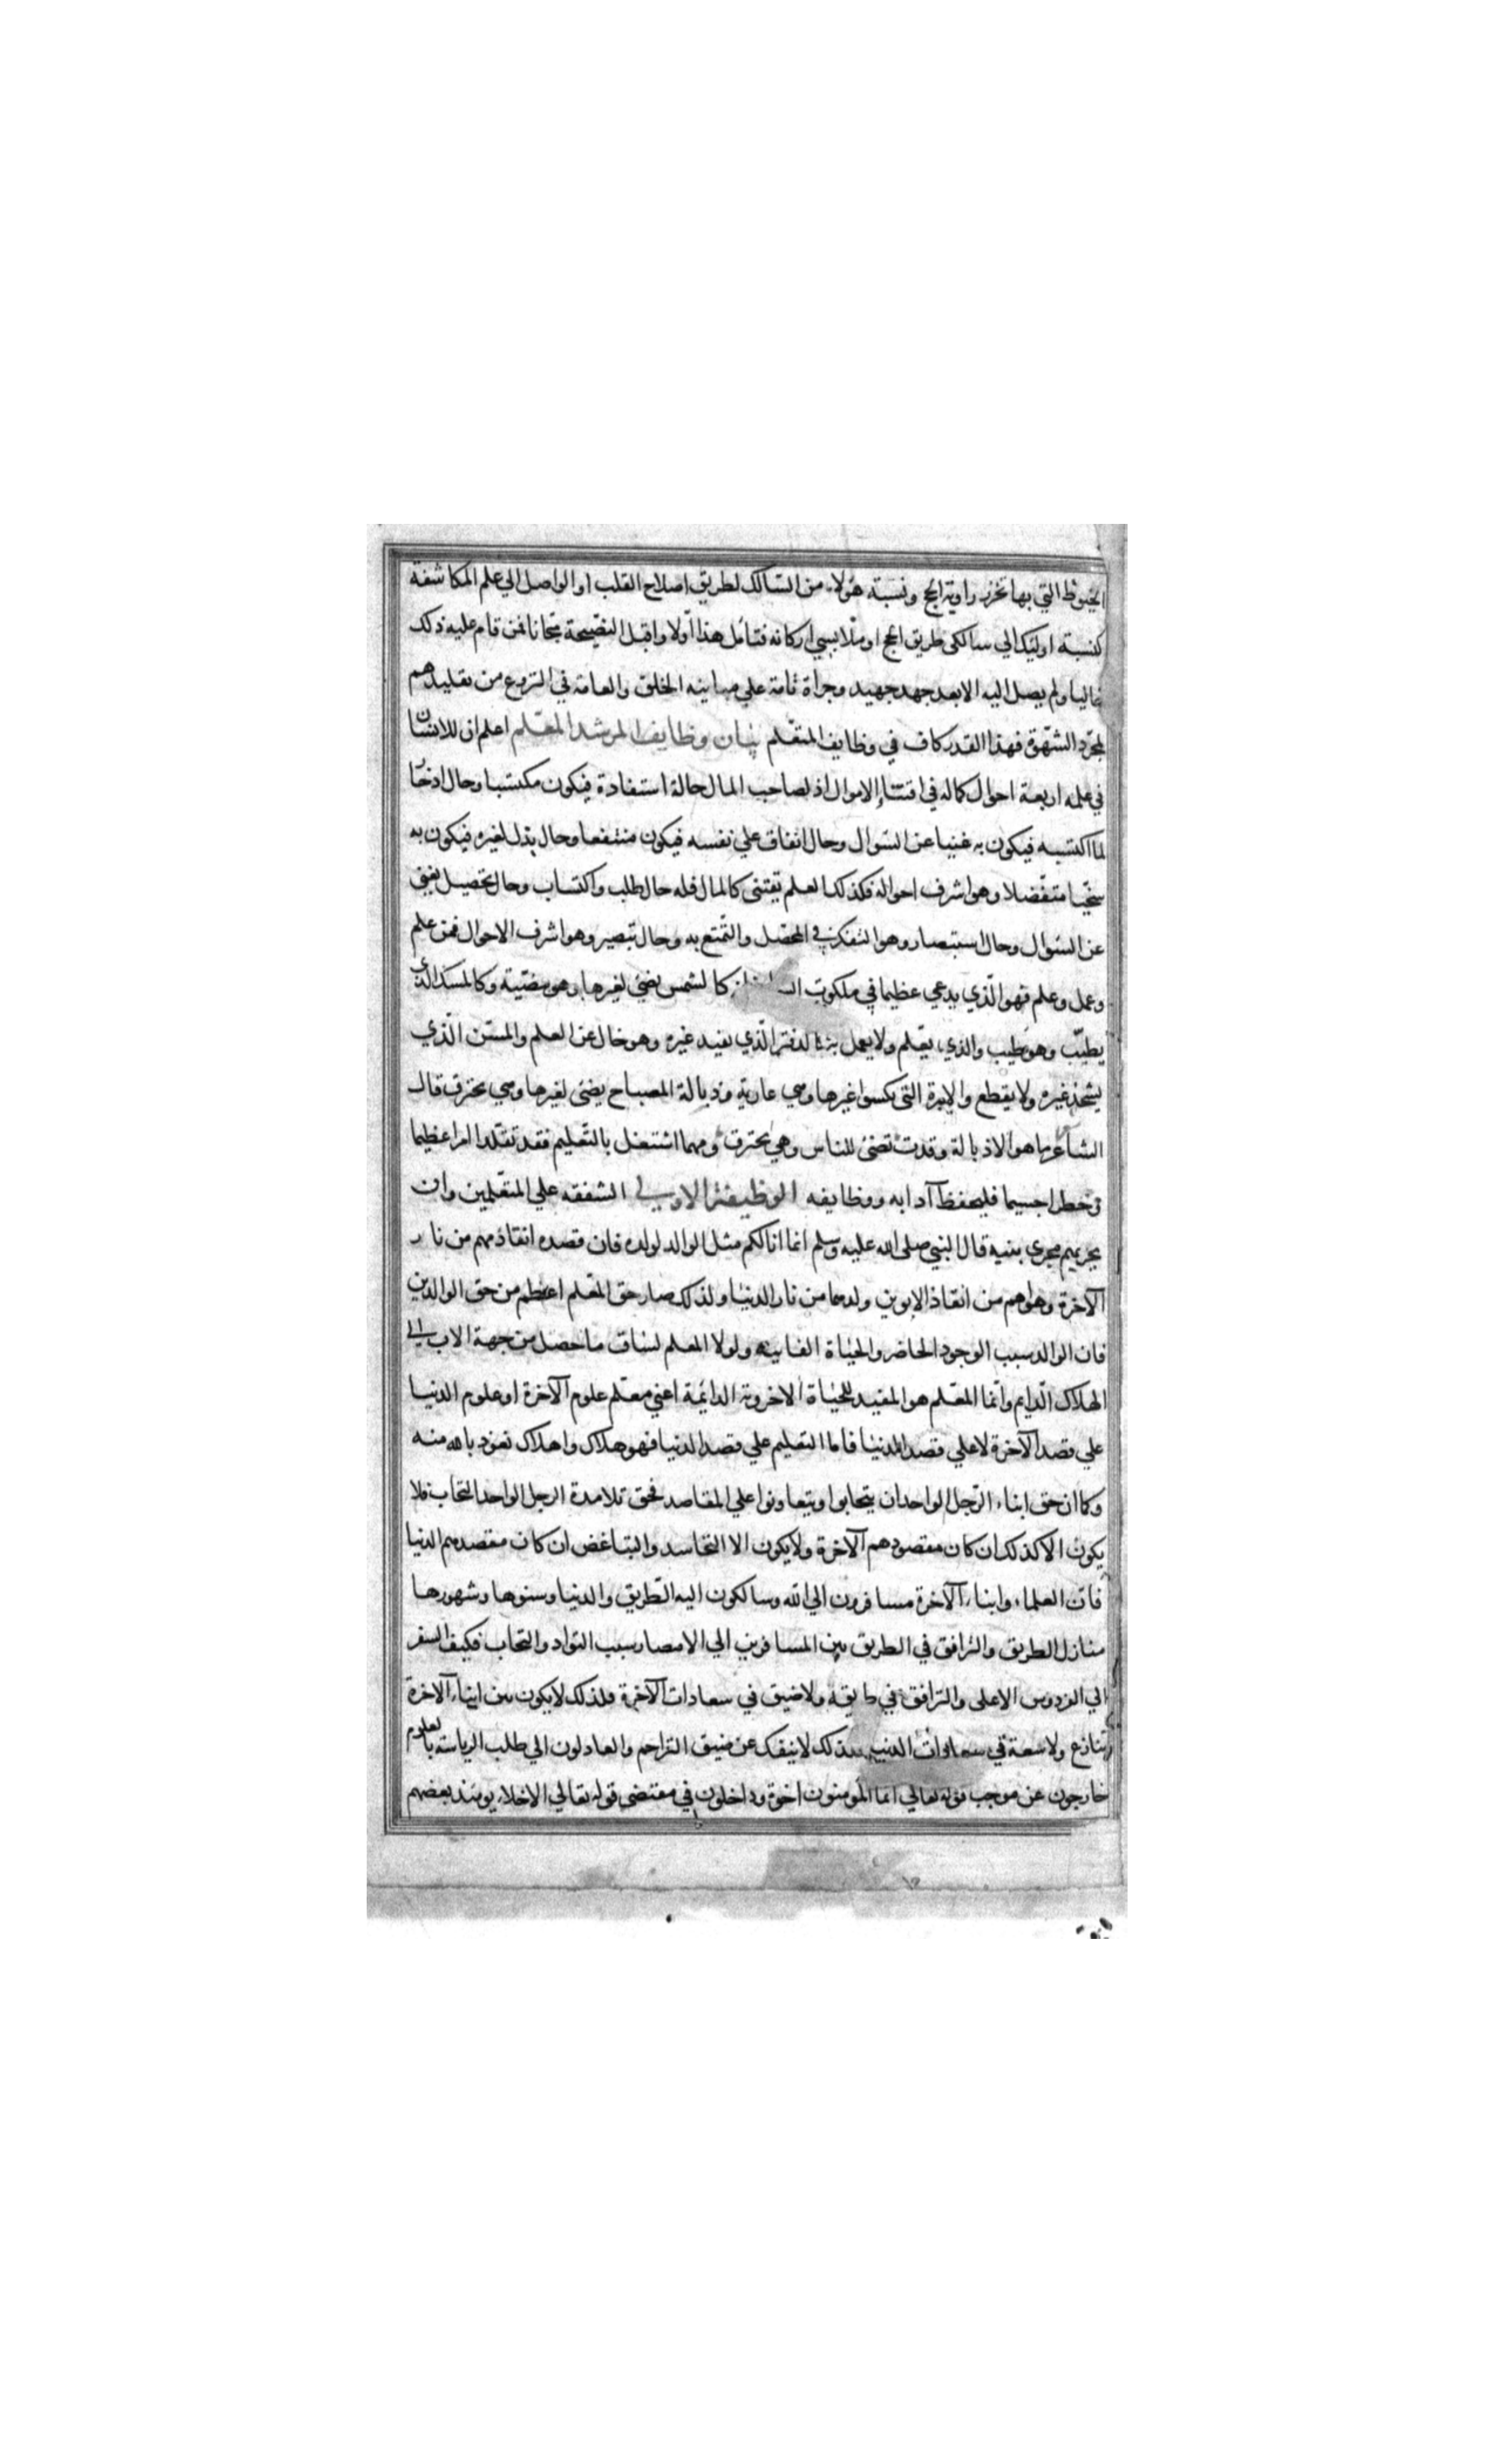 الخيوط التي بها تخرز راوية الحج ونسبة هؤلاء من السالك لطريق اصلاح القلب او الواصل الي علم المكاشفة
كنسبة اولئك الي سالكي طريق الحج او ملابسي اركانه فتامل هذا اولا واقبل النصيحة مجانا فمن قام عليه ذلك
غاليا ولم يصل اليه الا بعد جهد جهيد وجراة تامة علي مباينه الخلق والعامة في النزوع من تقليدهم
لمجرد الشهوة فهذا القدر كاف في وظايف المتعلم بيان وظايف المرشد المعلم اعلم ان للانسان
في علمه اربعة احوال كماله في اقتناء الاموال اذ لصاحب المال حالة استفادة فيكون مكتسبا وحال ادخار
لما اكتسبه فيكون به غنيا عن السوال وحال انفاق علي نفسه فيكون منتفعا وحال بذل لغيره فيكون به
سخيا متفضلا وهو اشرف احواله فكذلك العلم يقتنى كالمال فله حال طلب واكتساب وحال تحصيل يغني
عن السوال وحال استبصار وهو التفكر في المحصل والتمتع به وحال تبصير وهو اشرف الاحوال فمن علم
وعمل وعلم فهو الذي يدعي عظيما في ملكوت كالشمس يضئ لغيرها وهو مضيئة وكالمسك الذي
يطيب وهو طيب والذي يعلم ولا يعمل به كالدفتر الذي يفيد غيره وهو خال عن العلم والمسن الذي
يشحذ غيره ولا يقطع والابرة التي تكسوا غيرها وهي عارية وذبالة المصباح يضئ لغيرها وهي تحترق قال
الشاعر ما هو الا ذبالة وقدت تضئ للناس وهي تحترق ومهما اشتغل بالتعليم فقد تقلد امرا عظيما
وخطرا جسيما فليحفظ آدابه ووظايفه الوظيفة الاولي الشفقه علي المتعلمين وان
يجريهم مجري بنيه قال النبي صلى الله عليه وسلم انما انا لكم مثل الوالد لولده فان قصده انقاذهم من نار
الآخرة وهو اهم من انقاذ الابوين ولدهما من نار الدنيا ولذلك صار حق المعلم اعظم من حق الوالدين
فان الوالد سبب الوجود الحاضر والحياة الفانيه ولولا المعلم لساق ما حصل من جهة الاب الي
الهلاك الدايم وانما المعلم هو المفيد للحياة الاخروية الدائمة اعني معلم علوم الآخرة او علوم الدنيا
علي قصد الآخرة لا علي قصد الدنيا فاما التعليم علي قصد الدنيا فهو هلاك واهلاك نعوذ بالله منه
وكما ان حق ابناء الرجل الواحد ان يتحابوا ويتعاونوا علي المقاصد فحق تلامذة الرجل الواحد التحاب فلا
يكون الا كذلك ان كان مقصودهم الآخرة ولا يكون الا التحاسد والتباغض ان كان مقصدهم الدنيا
فان العلماء وابناء الآخرة مسافرون الي الله وسالكون اليه الطريق والدنيا وسنوها وشهورها
منازل الطريق والترافق في الطريق بين المسافرين الي الامصار سبب التواد والتحاب فكيف السفر
الي الفردوس الاعلى والترافق في طريقه ولا ضيق في سعادات الآخرة فلذلك لا يكون بين ابناء الآخرة
تنازع ولا سعة في سعادات الدنيا فلذلك لا ينفك عن ضيق التزاحم والعادلون الي طلب الرياسة بالعلوم
خارجون عن موجب قوله تعالي انما المؤمنون اخوة وداخلون في مقتضى قوله تعالي الاخلاء يومئذ بعضهم